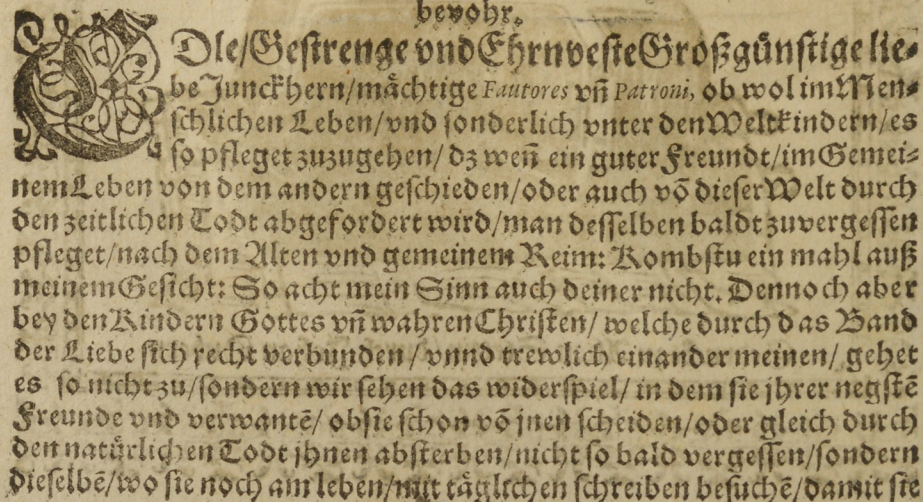 bevohr.
EDle/Gestrenge vnd Ehrnveste Großgünstige lie-
be Junckhern/mächtige Fautores vñ Patroni, ob wol im Men-
schlichen Leben/vnd sonderlich vnter den Weltkindern/es
so pfleget zuzugehen/dz weñ ein guter Freundt/im Gemei-
nem Leben von dem andern geschieden/oder auch võ dieser Welt durch
den zeitlichen Todt abgefordert wird/man desselben baldt zuvergessen
pfleget/nach dem Alten vnd gemeinem Reim: Kombstu ein mahl auß
meinem Gesicht: So acht mein Sinn auch deiner nicht. Dennoch aber
bey den Kindern Gottes vñ wahren Christen/ welche durch das Band
der Liebe sich recht verbunden/vnnd trewlich einander meinen/ gehet
es so nicht zu/sondern wir sehen das widerspiel/ in dem sie jhrer negstẽ
Freunde vnd verwantẽ/ obsie schon võ jnen scheiden/oder gleich durch
den natürlichen Todt jhnen absterben/nicht so bald vergessen/sondern
dieselbẽ/wo sie noch am leben/mit täglichen schreiben besuchẽ/damit sie